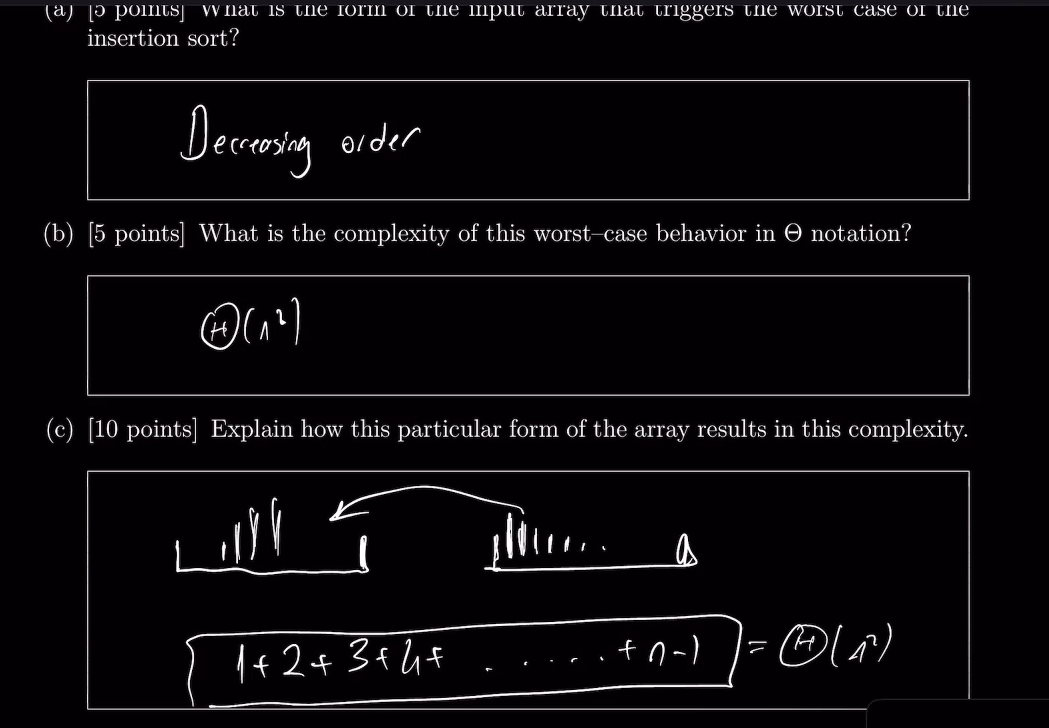 (a) [5 points] What is the form of the input array that triggers the worst case of the
insertion sort?
Decreasing order
(b) [5 points] What is the complexity of this worst–case behavior in Θ notation?
Θ(n²)
(c) [10 points] Explain how this particular form of the array results in this complexity.
1+2+3+4+ ...... +n-1 = Θ(n²)